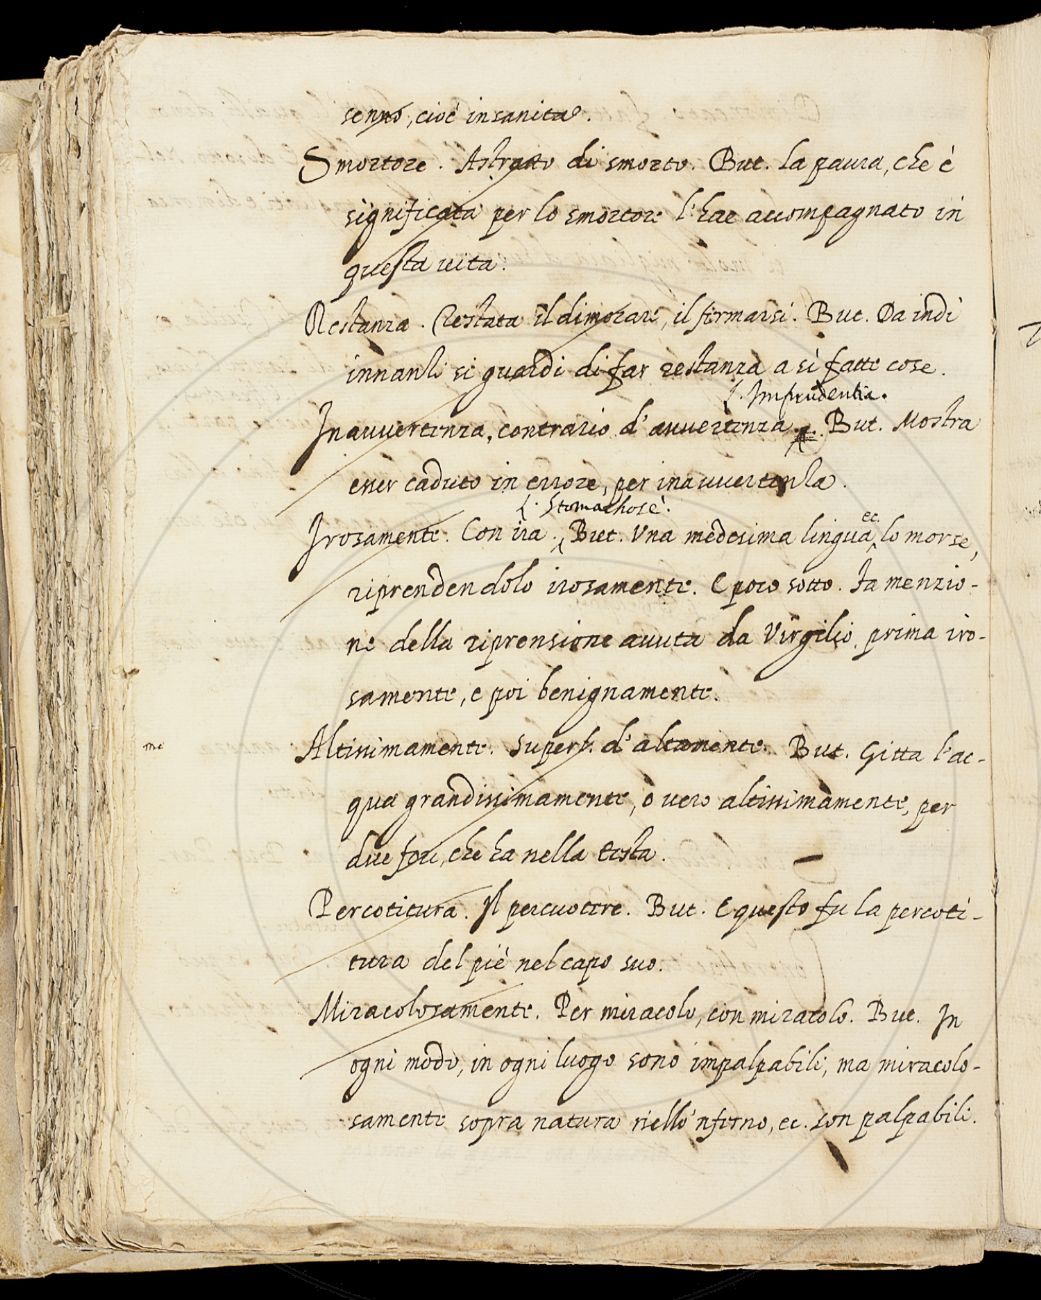 senno, cioè insanita.
Smortore. Astratto di smorto. But. La paura, che è
significata per lo smortore l'hae accompagnato in
questa vita.
Restanza. Restata il dimorare, il firmarsi. But. Da indi
innanzi si guardi di far restanza a sì fatte cose.
L. Imprudentia.
Inavvertenza, contrario d'avvertenza. But. Mostra
esser caduto in errore, per inavvertenza.
L. Stomachose.
Irosamente. Con ira. But. Una medesima lingua ec. lo morse,
riprendendolo irosamente. E poco sotto. Fa menzio-
ne della riprensione avuta da Virgilio prima iro-
samente, e poi benignamente.
me
Altissimamente. Superl. d'altamente. But. Gitta l'ac-
qua grandissimamente, o vero altissimamente, per
due fori, che ha nella testa.
Percotitura. Il percuotere. But. E questo fu la percoti-
tura del piè nel capo suo.
Miracolosamente. Per miracolo, con miracolo. But. In
ogni modo, in ogni luogo sono impalpabili, ma miracolo-
samente sopra natura nello 'nferno, ec. son palpabili.